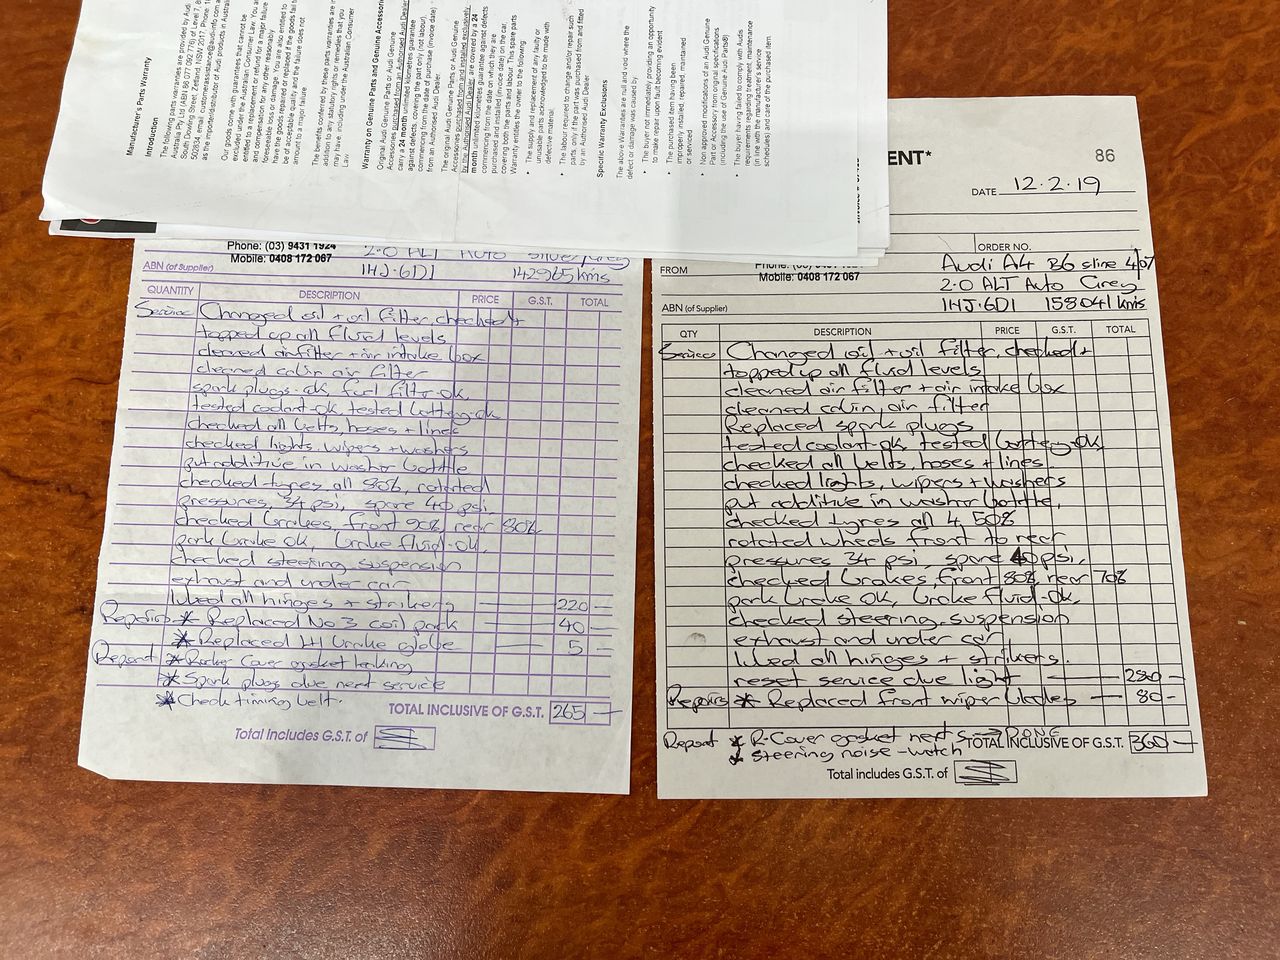 Manufacturer's Parts Warranty
Introduction
The following parts warranties are provided by Audi
Australia Pty Ltd (ABN 86 077 092 776) of Level 7, 8
South Dowling Street, Zetland, NSW 2017, Phone: 1
502834, email: customerassistance@audi-info.com a
as the importer/distributor of Audi products in Australi
Our goods come with guarantees that cannot be
excluded under the Australian Consumer Law. You are
entitled to a replacement or refund for a major failure
and compensation for any other reasonably
foreseeable loss or damage. You are also entitled to
have the goods repaired or replaced if the goods fail
be of acceptable quality and the failure does not
amount to a major failure
The benefits conferred by these parts warranties are in
addition to any statutory rights or remedies that you
may have, including under the Australian Consumer
Law
Warranty on Genuine Parts and Genuine Accessori
Original Audi Genuine Parts or Audi Genuine
Accessories purchased from an Authorised Audi Dealer
carry a 24 month unlimited kilometres guarantee
against defects, covering the part only (not labour),
from the date of purchase (invoice date)
from an Authorised Audi Dealer.
The original Audi Genuine Parts or Audi Genuine
Accessories purchased from and installed exclusively
by the Authorised Audi Dealer, are covered by a 24
month unlimited kilometres guarantee against defects
commencing from the date on which they are
purchased and installed (invoice date) on the car,
covering both the parts and labour. This spare parts
Warranty entitles the owner to the following
• The supply and replacement of any faulty or
unusable parts acknowledged to be made with
defective material.
• The labour required to change and/or repair such
parts, only if the part was purchased from and fitted
by an Authorised Audi Dealer.
Specific Warranty Exclusions
The above Warranties are null and void where the
defect or damage was caused by
• The buyer not immediately providing an opportunity
to make repair upon fault becoming evident
• The purchased item having been
improperly installed, repaired, maintained
or serviced
• Non approved modifications of an Audi Genuine
Part or Accessory from original specifications
(including the use of Genuine Audi Parts®)
• The buyer having failed to comply with Audis
requirements regarding treatment, maintenance
(in line with the manufacturer's service
schedules) and care of the purchased item
Phone: (03) 9431 1924
2.0 ALT Auto Silver/Grey
Mobile: 0408 172 067
ABN (of Supplier)
1HJ.6D1 142965 kms
QUANTITY DESCRIPTION PRICE G.S.T. TOTAL
Service Changed oil + oil filter, checked +
topped up all fluid levels
cleaned airfilter + air intake box
cleaned cabin air filter
spark plugs-ok, fuel filter-ok
tested coolant-ok, tested battery-ok
checked all belts, hoses + lines
checked lights, wipers + washers
put additive in washer bottle
checked tyres all 80%, rotated
pressures, 34 psi, spare 40 psi,
checked brakes, front 90% rear 80%
park brake ok, brake fluid-ok,
checked steering, suspension
exhaust and under car
lubed all hinges + strikers 220 —
Repairs * Replaced No 3 coil pack 40 —
* Replaced LH brake globe 5 —
Report * Rocker Cover gasket leaking
* Spark plugs due next service
* Check timing belt.
TOTAL INCLUSIVE OF G.S.T. 265 —
Total Includes G.S.T. of $
ENT*
86
DATE 12.2.19
ORDER NO.
FROM
Audi A4 B6 sline 4/07
Mobile: 0408 172 067
2.0 ALT Auto Grey
ABN (of Supplier)
1HJ.6D1 158041 kms
QTY DESCRIPTION PRICE G.S.T. TOTAL
Service Changed oil + oil filter, checked +
topped up all fluid levels
cleaned air filter + air intake box
cleaned cabin air filter
Replaced spark plugs
tested coolant-ok, tested battery-ok,
checked all belts, hoses + lines
checked lights, wipers + washers
put additive in washer bottle,
checked tyres all 4, 50%
rotated wheels front to rear
pressures 34 psi, spare 40 psi,
checked brakes, front 80%, rear 70%
park brake ok, brake fluid-ok,
checked steering, suspension
exhaust and under car,
lubed all hinges + strikers.
reset service due light 280 —
Repairs * Replaced front wiper blades — 80 —
Report * R-Cover gasket next s → DONE
* Steering noise - watch
TOTAL INCLUSIVE OF G.S.T. 360 —
Total includes G.S.T. of $